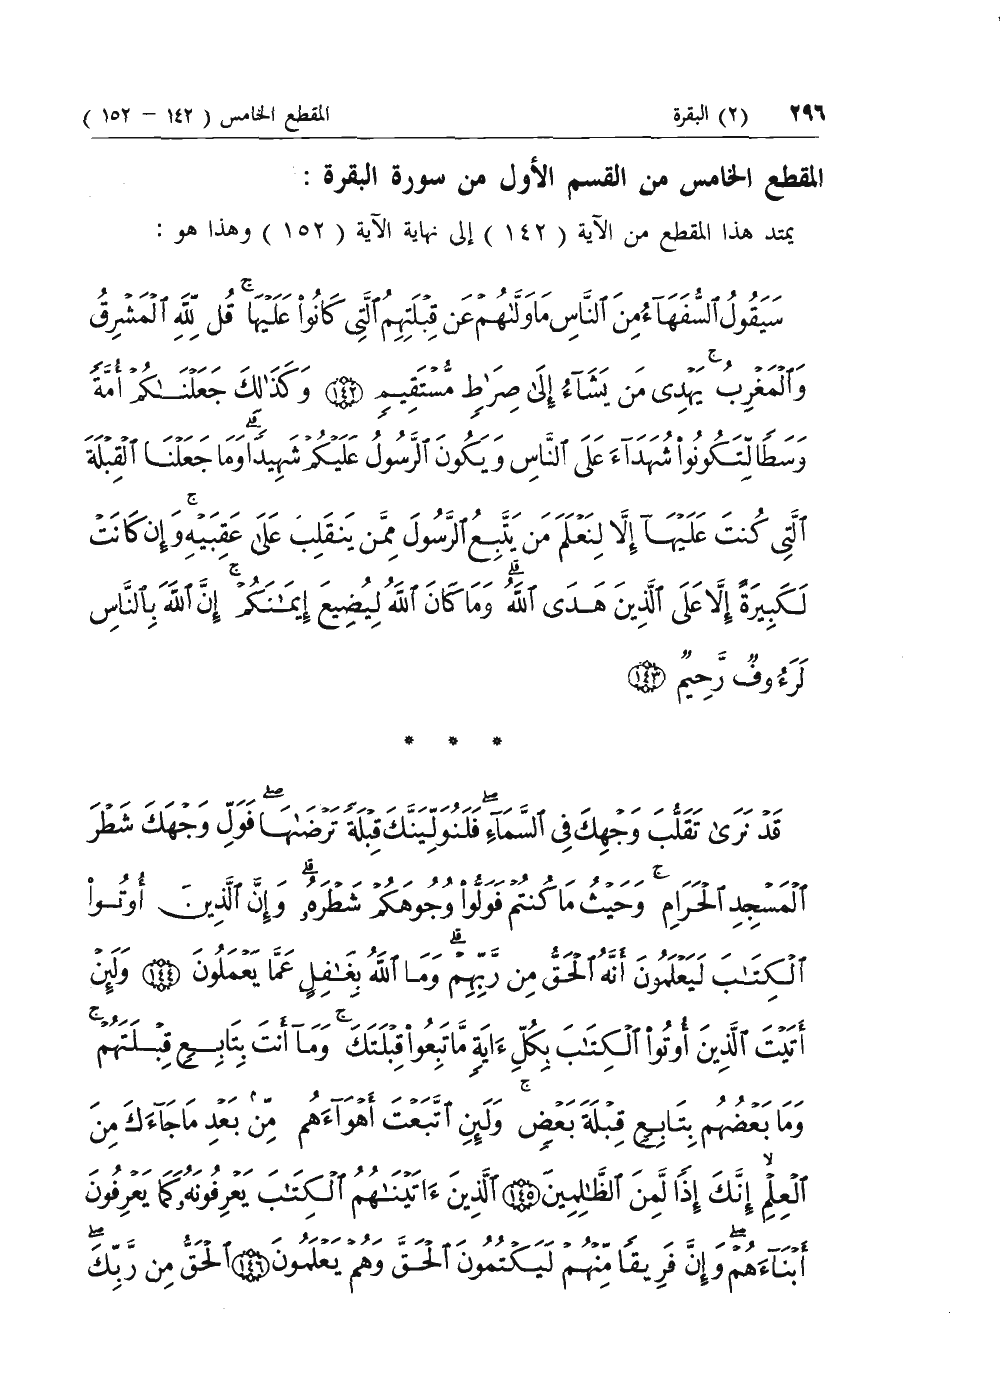 ٢٩٦ (٢) البقرة المقطع الخامس ( ١٤٢ – ١٥٢ )
المقطع الخامس من القسم الأول من سورة البقرة :
يمتد هذا المقطع من الآية ( ١٤٢ ) إلى نهاية الآية ( ١٥٢ ) وهذا هو :
سَيَقُولُ ٱلسُّفَهَآءُ مِنَ ٱلنَّاسِ مَا وَلَّىٰهُمْ عَن قِبْلَتِهِمُ ٱلَّتِى كَانُوا۟ عَلَيْهَا ۚ قُل لِّلَّهِ ٱلْمَشْرِقُ
وَٱلْمَغْرِبُ ۚ يَهْدِى مَن يَشَآءُ إِلَىٰ صِرَٰطٍ مُّسْتَقِيمٍ ﴿١٤٢﴾ وَكَذَٰلِكَ جَعَلْنَـٰكُمْ أُمَّةً
وَسَطًا لِّتَكُونُوا۟ شُهَدَآءَ عَلَى ٱلنَّاسِ وَيَكُونَ ٱلرَّسُولُ عَلَيْكُمْ شَهِيدًا ۗ وَمَا جَعَلْنَا ٱلْقِبْلَةَ
ٱلَّتِى كُنتَ عَلَيْهَآ إِلَّا لِنَعْلَمَ مَن يَتَّبِعُ ٱلرَّسُولَ مِمَّن يَنقَلِبُ عَلَىٰ عَقِبَيْهِ ۚ وَإِن كَانَتْ
لَكَبِيرَةً إِلَّا عَلَى ٱلَّذِينَ هَدَى ٱللَّهُ ۗ وَمَا كَانَ ٱللَّهُ لِيُضِيعَ إِيمَـٰنَكُمْ ۚ إِنَّ ٱللَّهَ بِٱلنَّاسِ
لَرَءُوفٌ رَّحِيمٌ ﴿١٤٣﴾
* * *
قَدْ نَرَىٰ تَقَلُّبَ وَجْهِكَ فِى ٱلسَّمَآءِ ۖ فَلَنُوَلِّيَنَّكَ قِبْلَةً تَرْضَىٰهَا ۖ فَوَلِّ وَجْهَكَ شَطْرَ
ٱلْمَسْجِدِ ٱلْحَرَامِ ۚ وَحَيْثُ مَا كُنتُمْ فَوَلُّوا۟ وُجُوهَكُمْ شَطْرَهُۥ ۗ وَإِنَّ ٱلَّذِينَ أُوتُوا۟
ٱلْكِتَـٰبَ لَيَعْلَمُونَ أَنَّهُ ٱلْحَقُّ مِن رَّبِّهِمْ ۗ وَمَا ٱللَّهُ بِغَـٰفِلٍ عَمَّا يَعْمَلُونَ ﴿١٤٤﴾ وَلَئِنْ
أَتَيْتَ ٱلَّذِينَ أُوتُوا۟ ٱلْكِتَـٰبَ بِكُلِّ ءَايَةٍ مَّا تَبِعُوا۟ قِبْلَتَكَ ۚ وَمَآ أَنتَ بِتَابِعٍ قِبْلَتَهُمْ ۚ
وَمَا بَعْضُهُم بِتَابِعٍ قِبْلَةَ بَعْضٍ ۚ وَلَئِنِ ٱتَّبَعْتَ أَهْوَآءَهُم مِّنۢ بَعْدِ مَا جَآءَكَ مِنَ
ٱلْعِلْمِ ۙ إِنَّكَ إِذًا لَّمِنَ ٱلظَّـٰلِمِينَ ﴿١٤٥﴾ ٱلَّذِينَ ءَاتَيْنَـٰهُمُ ٱلْكِتَـٰبَ يَعْرِفُونَهُۥ كَمَا يَعْرِفُونَ
أَبْنَآءَهُمْ ۖ وَإِنَّ فَرِيقًا مِّنْهُمْ لَيَكْتُمُونَ ٱلْحَقَّ وَهُمْ يَعْلَمُونَ ﴿١٤٦﴾ ٱلْحَقُّ مِن رَّبِّكَ ۖ